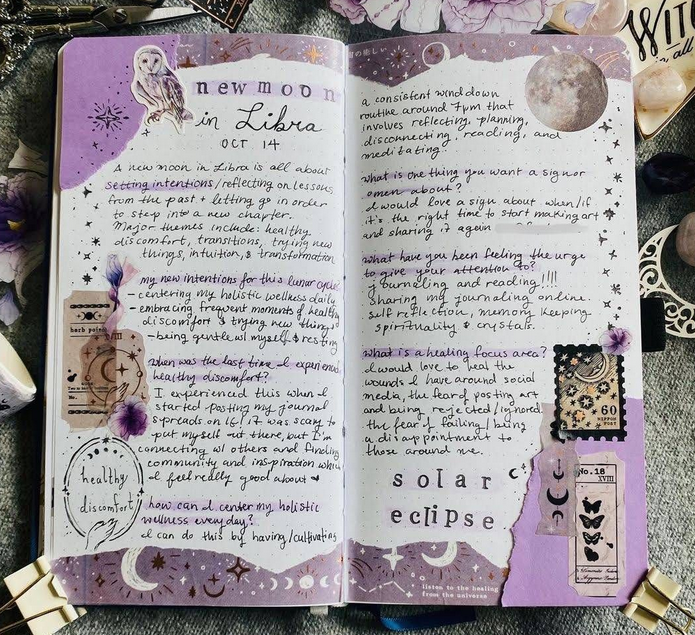 new moon
in Libra
OCT 14
A new moon in Libra is all about
setting intentions/reflecting on lessons
from the past + letting go in order
to step into a new chapter.
Major themes include: healthy
discomfort, transitions, trying new
things, intuition, & transformation
my new intentions for this lunar cycle:
- centering my holistic wellness daily
- embracing frequent moments of healthy
discomfort & trying new things
- being gentle w/ myself & resting
when was the last time I experienced
healthy discomfort?
I experienced this when I
started posting my journal
spreads on IG/ it was scary to
put myself out there, but I'm
connecting w/ others and finding
community and inspiration which
I feel really good about
how can I center my holistic
wellness everyday?
I can do this by having/cultivating
herb
healthy
discomfort
a consistent wind down
routine around 7pm that
involves reflecting, planning,
disconnecting, reading, and
meditating.
what is one thing you want a sign or
omen about?
I would love a sign about when/if
it's the right time to start making art
and sharing it again
what have you been feeling the urge
to give your attention to?
journaling and reading!!!!
sharing my journaling online.
self reflection, memory keeping
spirituality & crystals.
what is a healing focus area?
I would love to heal the
wounds I have around social
media, the fear of posting art
and being rejected/ignored.
the fear of failing/being
a disappointment to
those around me.
solar
eclipse
60
NIPPON
No.18
XVIII
listen to the healing
from the universe
in all